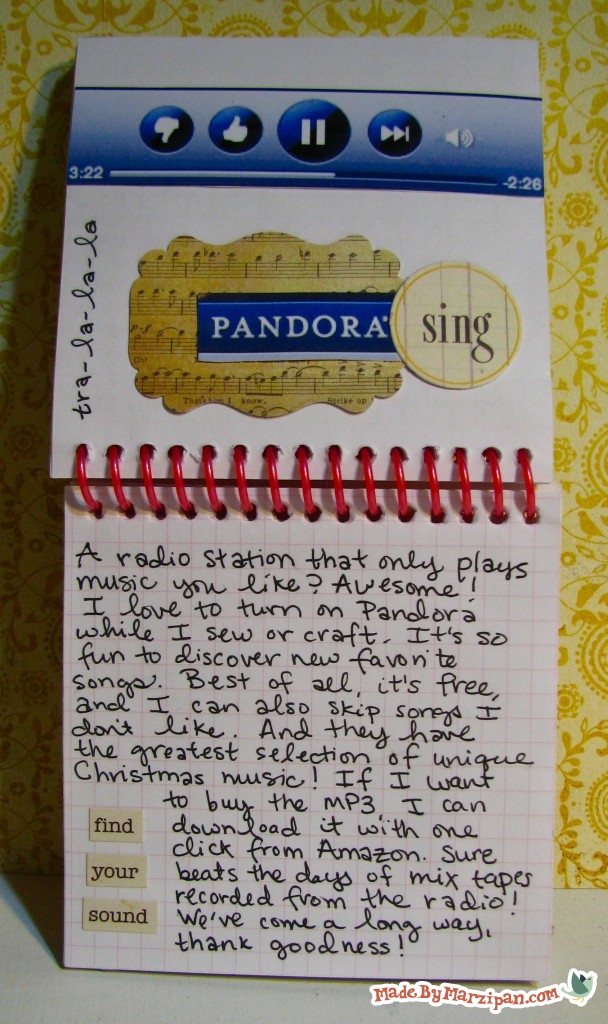 3:22
-2:26
tra-la-la-la
PANDORA®
sing
Oh!
That's him I know.
Strike up
A radio station that only plays
music you like? Awesome!
I love to turn on Pandora
while I sew or craft. It's so
fun to discover new favorite
songs. Best of all, it's free,
and I can also skip songs I
don't like. And they have
the greatest selection of unique
Christmas music! If I want
to buy the MP3, I can
download it with one
click from Amazon. Sure
beats the days of mix tapes
recorded from the radio!
We've come a long way,
thank goodness!
find
your
sound
MadeByMarzipan.com